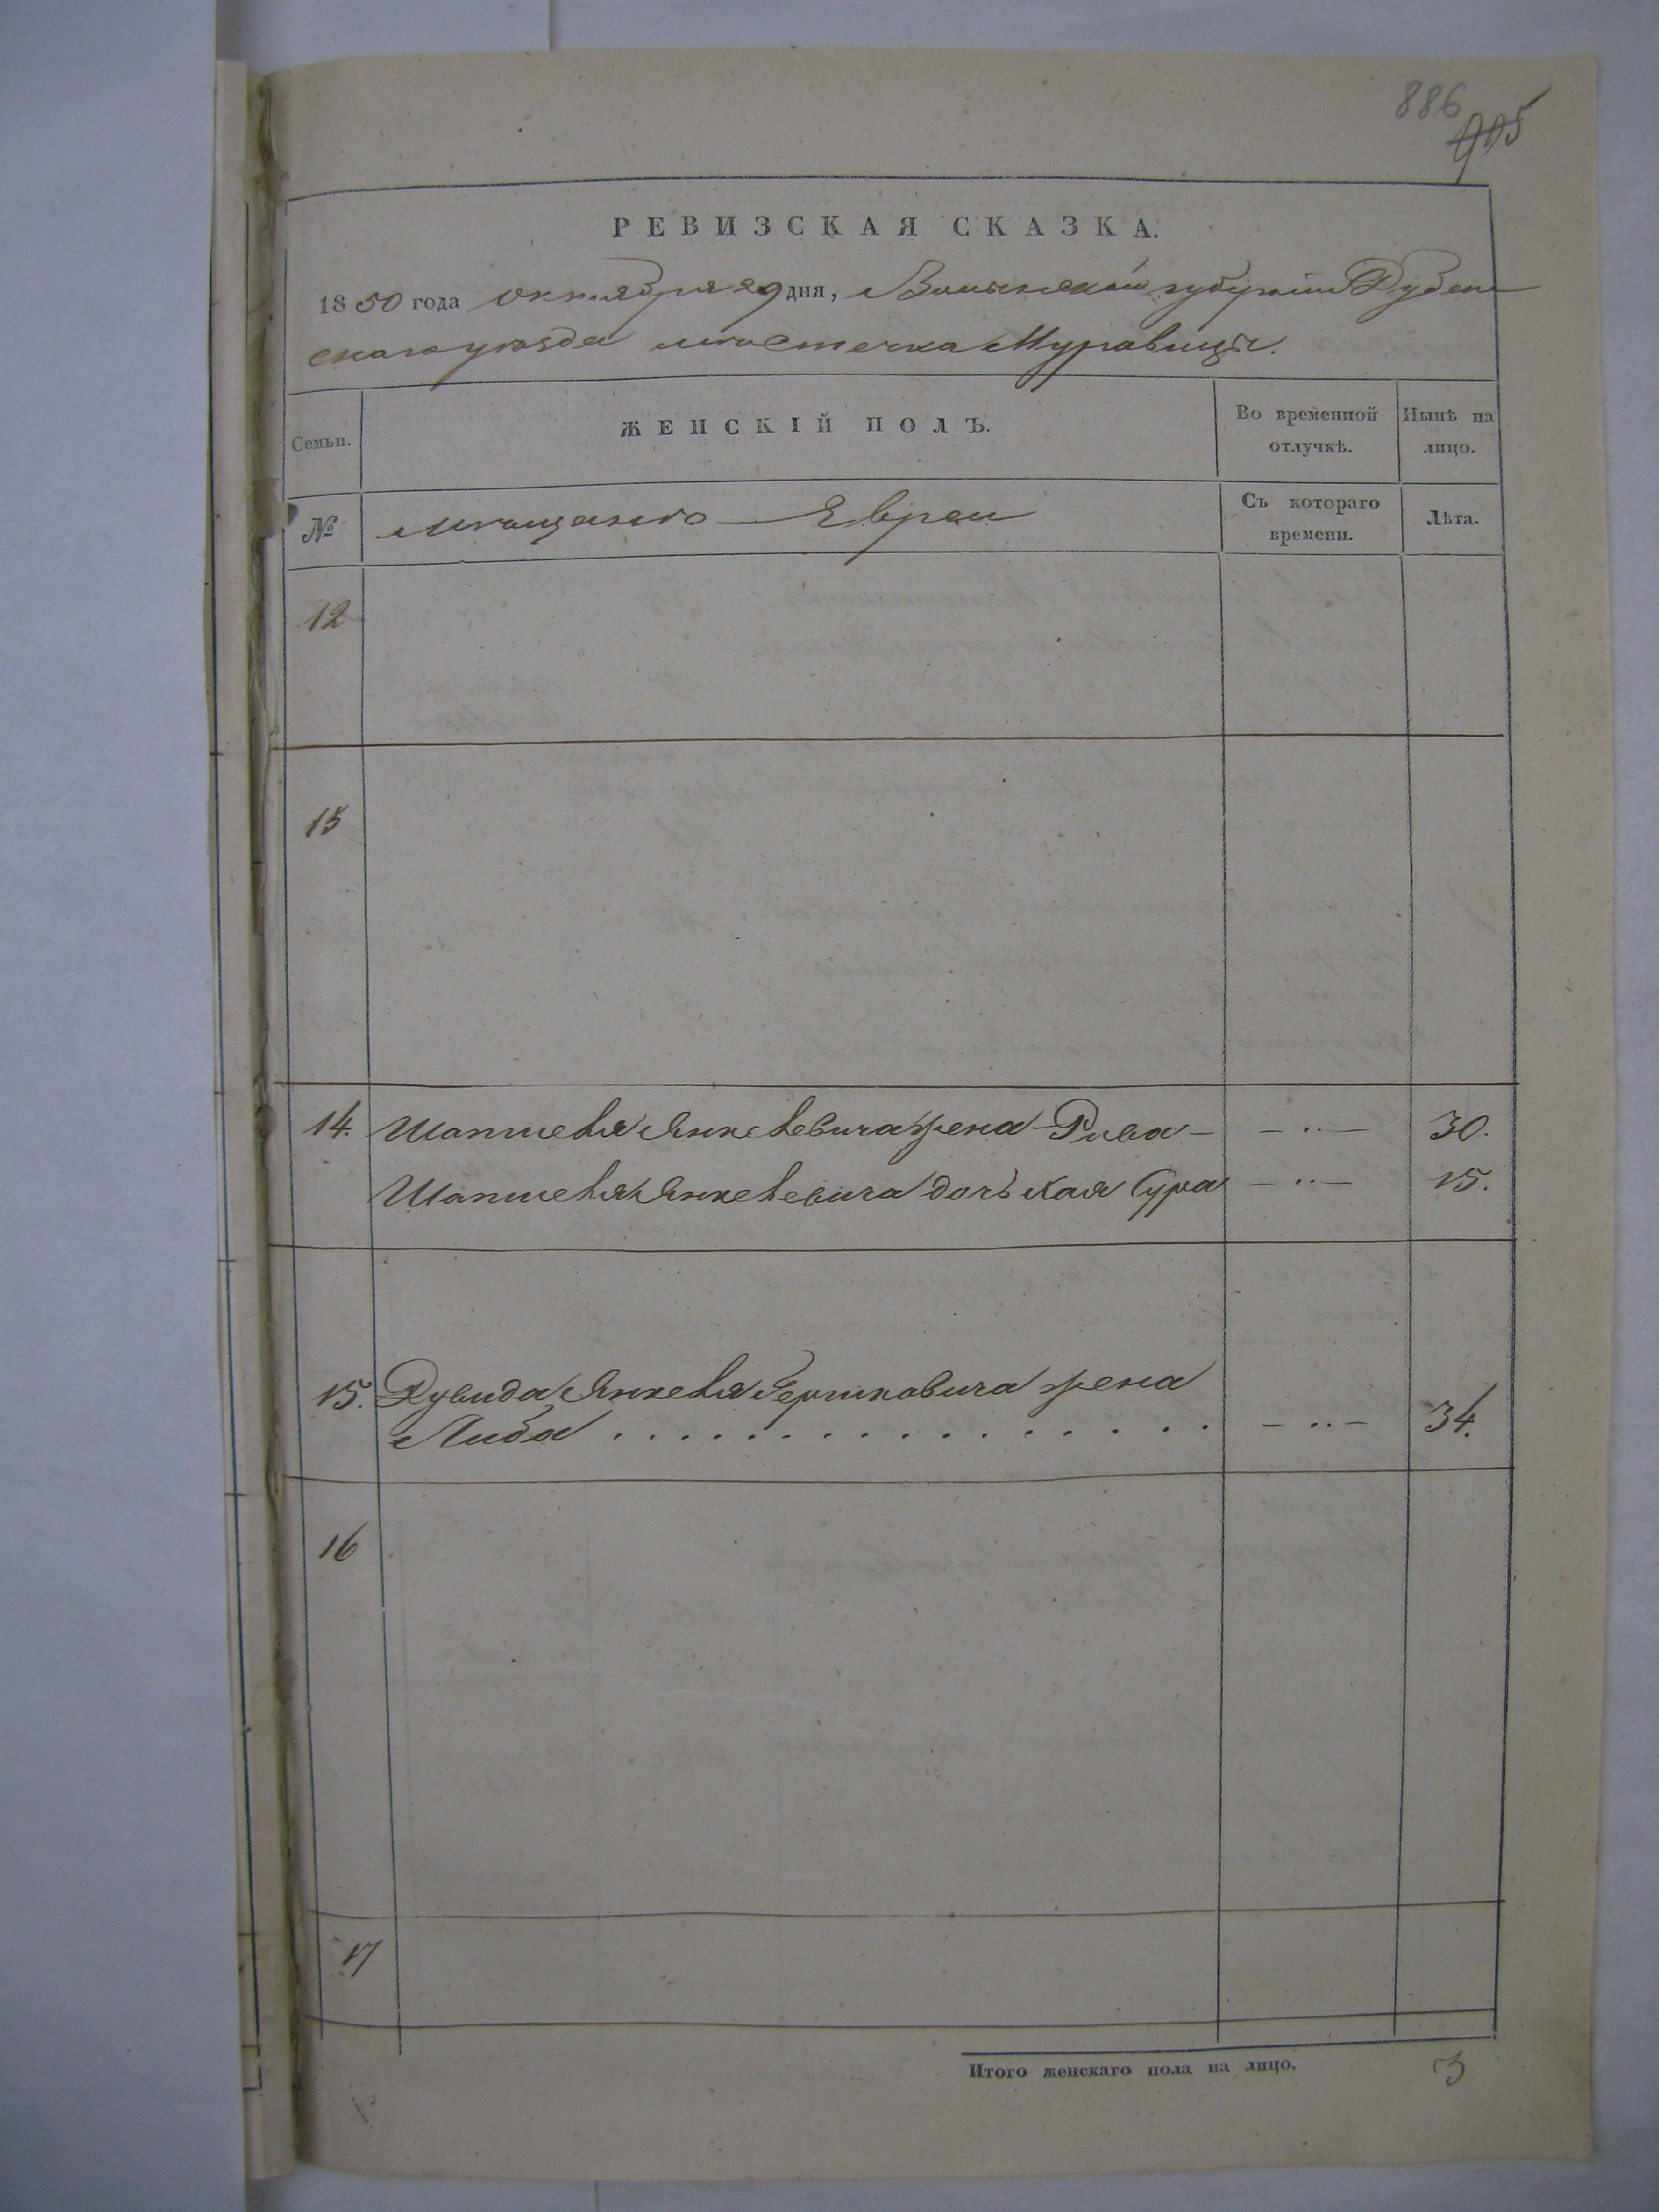 886
905
РЕВИЗСКАЯ СКАЗКА.
1850 года октября 29 дня, Волынской губерніи Дубен-
скаго уѣзда мѣстечка Муравицы.
Семьи.
ЖЕНСКІЙ ПОЛЪ.
Во временной отлучкѣ.
Нынѣ на лицо.
№
мѣщане Евреи
Съ котораго времени.
Лѣта.
12
13
14. Шапшеля Янкелевича жена Рива — — " — 30.
Шапшеля Янкелевича дочь Хая Сура — " — 15.
15. Дувида Янкеля Гершковича жена
Либа . . . . . . . . . . . . . . . . . — " — 34.
16
17
Итого женскаго пола на лицо. 3